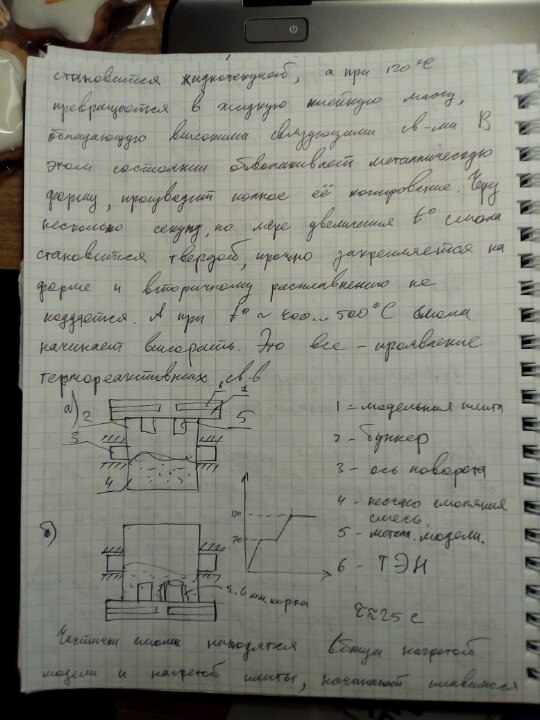 становится жидкотекучей, а при 120°С
превращается в жидкую клейкую массу,
обладающую высокими связующими св-ми. В
этом состоянии обволакивает металлическую
форму, производит полное её копирование. Через
несколько секунд, по мере увеличения t° смола
становится твердой, прочно закрепляется на
форме и вторичному расплавлению не
поддается. А при t° ~ 400...500°С смола
начинает выгорать. Это все - проявление
термореактивных св-в.
а)
2
3
4
1
5
1 - модельная плита
2 - бункер
3 - ось поворота
4 - песчано смоляная
смесь.
5 - метал. модели.
6 - ТЭН
120
70
б)
5..6 мм корка
τ≈25 с
Частички смолы находятся вблизи нагретой
модели и нагретой плиты, начинают плавиться